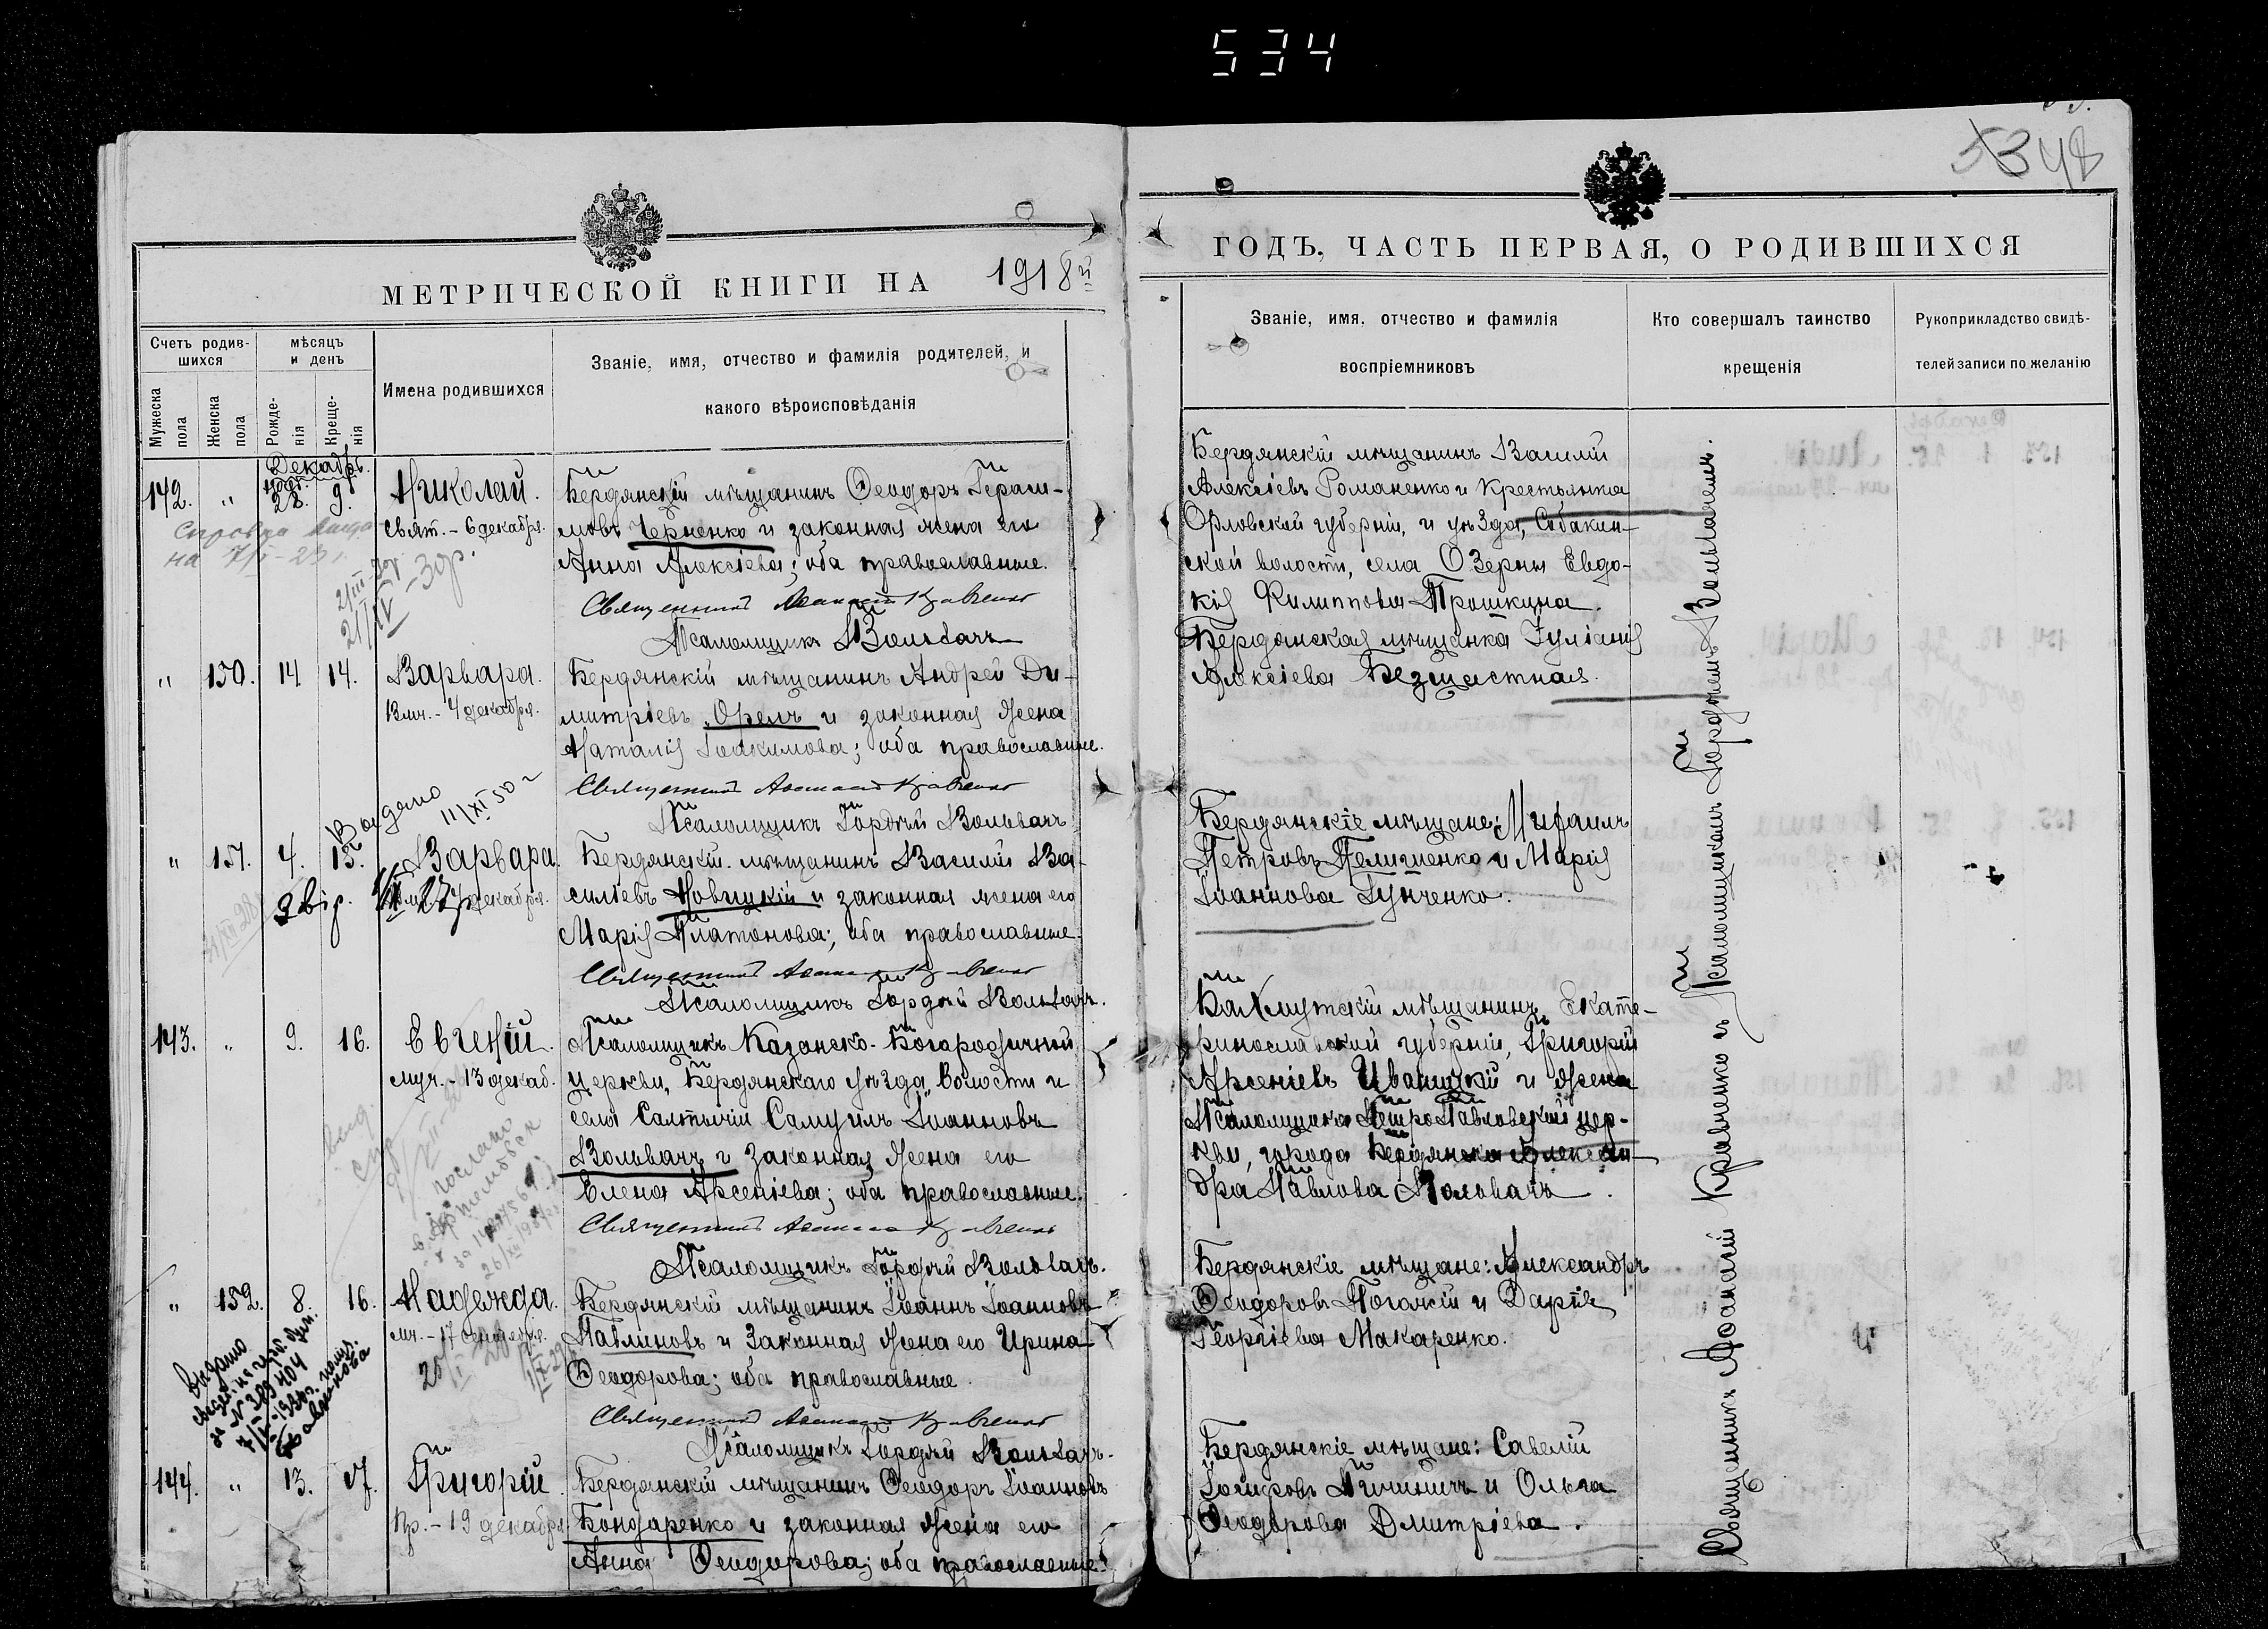 534
5348
МЕТРИЧЕСКОЙ КНИГИ НА 1918й
Счетъ родив-
шихся
мѣсяцъ
и день
Имена родившихся
Званіе, имя, отчество и фамилія родителей, и
какого вѣроисповѣданія
Мужеска
пола
Женска
пола
Рожде-
нія
Креще-
нія
Декабрь.
142. " 28. 9. Николай.
Свят. - 6 декабря.
Бердянскій мѣщанинъ Ѳеодоръ Гераси-
мовъ Черненко и законная жена его
Анна Алексіева; оба православные.
Священникъ Кравченко
Псаломщикъ Вольвачъ
Справка выдана
на 7/I-23 г.
21/IV-30р.
" 150. 14 14. Варвара.
Влмч. - 4 декабря.
Бердянскій мѣщанинъ Андрей Ди-
митріевъ Орелъ и законная жена
Наталія Іоакимова; оба православные.
Священникъ Аѳанасій Кравченко
Псаломщикъ Гордѣй Вольвачъ
Выдано
11/XI 50 г
" 151. 4. 15. Варвара.
4 декабря.
Бердянскій мѣщанинъ Василій Ва-
силіевъ Новицкій и законная жена его
Марія Платонова; оба православные.
Священникъ Аѳанасій Кравченко
Псаломщикъ Гордѣй Вольвачъ.
143. " 9. 16. Евгеній.
муч. - 13 декаб.
Псаломщикъ Казанско-Богородичной
церкви, Бердянскаго уѣзда, волости и
села Салтычіи Самуилъ Іоанновъ
Вольвачъ и законная жена его
Елена Арсеніева; оба православные.
Священникъ Аѳанасій Кравченко
Псаломщикъ Гордѣй Вольвачъ.
" 152. 8. 16. Надежда.
мч. - 17 сентября.
Бердянскій мѣщанинъ Іоаннъ Іоанновъ
Павлиновъ и законная жена его Ирина
Ѳеодорова; оба православные.
Священникъ Аѳанасій Кравченко
Псаломщикъ Гордѣй Вольвачъ.
Выдано
144. " 13. 17. Григорій.
Пр. - 19 декабря
Бердянскій мѣщанинъ Ѳеодоръ Іоанновъ
Бондаренко и законная жена его
Анна Ѳеодорова; оба православные.
ГОДЪ, ЧАСТЬ ПЕРВАЯ, О РОДИВШИХСЯ
Званіе, имя, отчество и фамилія
воспріемниковъ
Кто совершалъ таинство
крещенія
Рукоприкладство свидѣ-
телей записи по желанію
Бердянскій мѣщанинъ Василій
Алексіевъ Романенко и крестьянка
Орловской губерніи, и уѣзда, Собакин-
ской волости, села Озерны Евдо-
кія Филиппова Прошкина.
Бердянская мѣщанка Іуліанія
Алексіева Безщастная.
Бердянскіе мѣщане: Михаилъ
Петровъ Пелишенко и Марія
Іоаннова Гунченко.
Бахмутскій мѣщанинъ, Екате-
ринославской губерніи, Григорій
Арсеніевъ Иваницкій и жена
Псаломщика Петро-Павловской цер-
кви, города Бердянска Алексан-
дра Павлова Вольвачъ.
Бердянскіе мѣщане: Александръ
Ѳеодоровъ и Дарія
Георгіева Макаренко.
Бердянскіе мѣщане: Савелій
и Ольга
Ѳеодорова Дмитріева.
Священникъ Аѳанасій Кравченко съ Псаломщикомъ Гордѣемъ Вольвачемъ.